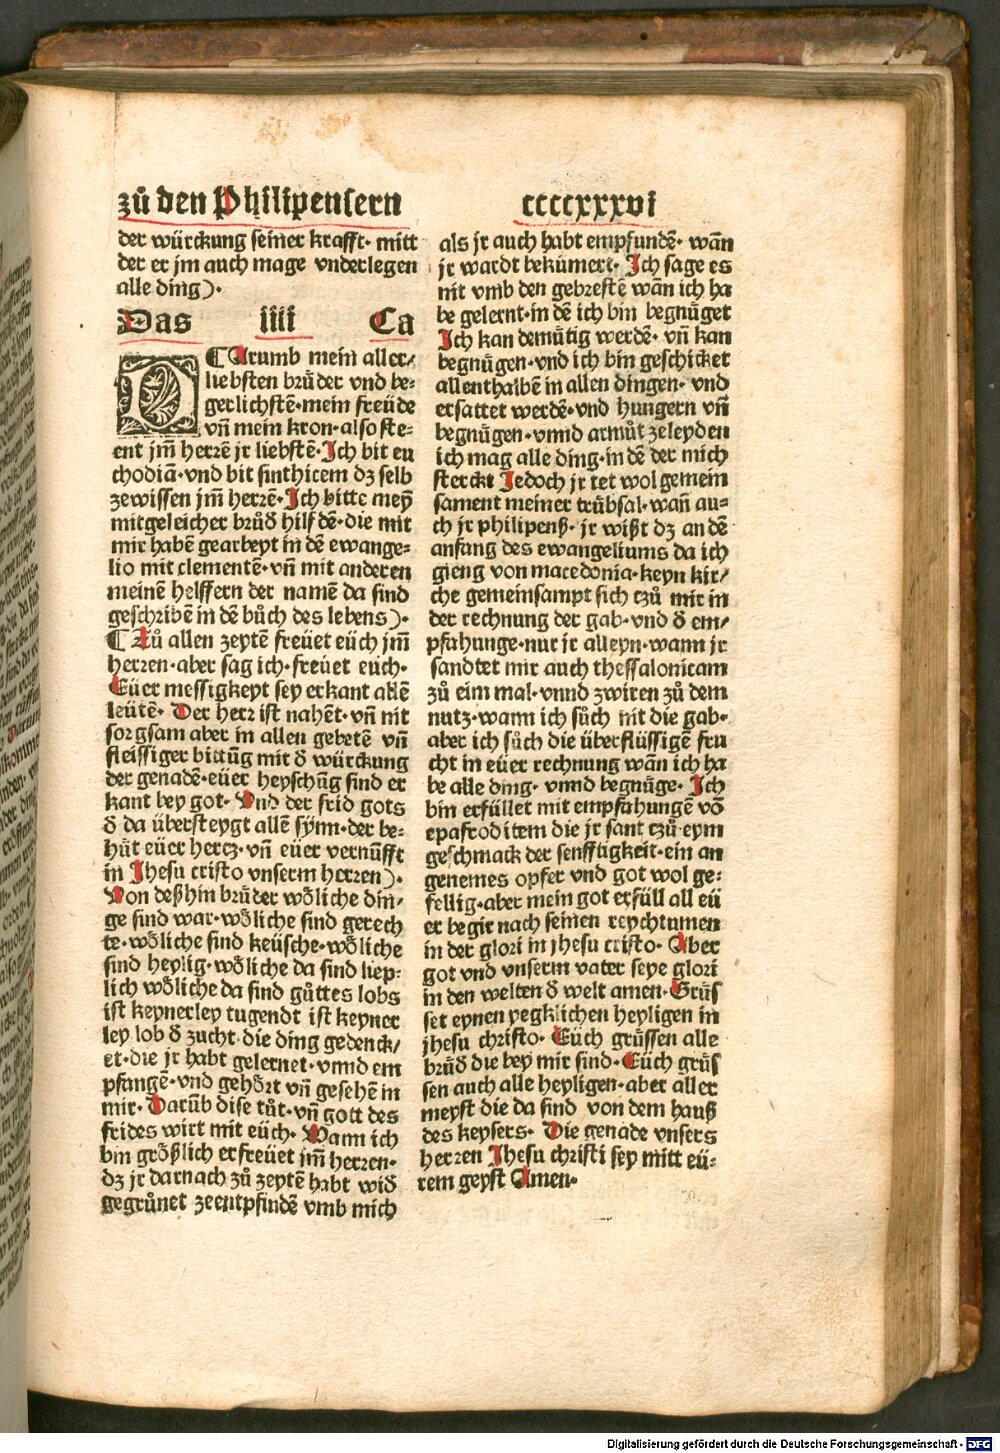 zů den Philipensern
ccccxxxvi
der würckung seiner krafft· mitt
der er jm auch mage vnderlegen
alle ding).
Das iiii Ca
DArumb mein aller/
liebsten brůder vnd be-
gerlichstē·mein freüde
vn̄ mein kron·also ste-
ent jm̄ herrē jr liebstē·Ich bit eu
chodiā·vnd bit sinthicem dz selb
zewissen jm̄ herrē·Ich bitte mey̅
mitgeleicher brůd̄ hilf dē·die mit
mir habē gearbeyt in dē ewange=
lio mit clementē·vn̄ mit anderen
meinē helffern der namē da sind
geschribē in dē bůch des lebens).
Zů allen zeytē freüet eüch jm̄
herren·aber sag ich·freüet euch·
Eüer messigkeyt sey erkant allē
leütē· Der herr ist nahēt·vn̄ nit
sorgsam aber in allen gebetē vn̄
fleissiger bittūg mit d̄ würckung
der genadē·eüer heyschūg sind er
kant bey got· Vnd der frid gots
d̄ da übersteygt allē sy̅nn·der be=
hůt eüer hercz·vn̄ eüer vernūfft
in Jhesu cristo vnserm herren).
Von deßhin brůder wōliche din-
ge sind war·wōliche sind gerech
te·wōliche sind keüsche·wōliche
sind heylig·wōliche da sind liep=
lich wōliche da sind gůttes lobs
ist keynerley tugendt ist keyner
ley lob d̄ zucht·die ding gedenck/
et·die jr habt gelernet·vnnd em
pfangē·vnd gehört vn̄ gesehē in
mir· Darūb dise tůt·vn̄ gott des
frides wirt mit eüch· Wann ich
bin größlich erfreüet jm̄ herren·
dz jr darnach zů zeytē habt wid̄
gegrůnet zeentpfindē vmb mich
als jr auch habt empfundē· wān
jr wardt bekümert· Ich sage es
nit vmb den gebrestē wān ich ha
be gelernt·in dē ich bin begnüget
Ich kan demütig werdē· vn̄ kan
begnügen·vnd ich bin geschicket
allenthalbē in allen dingen· vnd
ersattet werdē·vnd hungern vn̄
begnügen·vnnd armůt zeleyden
ich mag alle ding·in dē der mich
sterckt Jedoch jr tet wol gemein
sament meiner trübsal·wan̄ au=
ch jr philipenß· jr wißt dz an dē
anfang des ewangeliums da ich
gieng von macedonia·keyn kir/
che gemeinsampt sich czů mir in
der rechnung der gab·vnd d̄ em/
pfahunge·nur jr alleyn·wann jr
sandtet mir auch thessalonicam
zů eim mal·vnnd zwiren zů dem
nutz·wann ich sůch nit die gab·
aber ich sůch die überflüssigē fru
cht in eüer rechnung wān ich ha
be alle ding· vnnd begnüge· Ich
bin erfüllet mit empfahungē vō
epafroditem die jr sant czů eym
geschmack der senfftigkeit·ein an
genemes opfer vnd got wol ge=
fellig·aber mein got erfüll all eü
er begir nach seinen reychtumen
in der glori in jhesu cristo· Aber
got vnd vnserm vater seye glori
in den welten d̄ welt amen·Grüs
set eynen yegklichen heyligen in
jhesu christo· Eüch grüssen alle
brůd̄ die bey mir sind·Eüch grüs
sen auch alle heyligen·aber aller
meyst die da sind von dem hauß
des keysers· Die genade vnsers
herren Jhesu christi sey mitt eü=
rem geyst Amen·
Digitalisierung gefördert durch die Deutsche Forschungsgemeinschaft - DFG